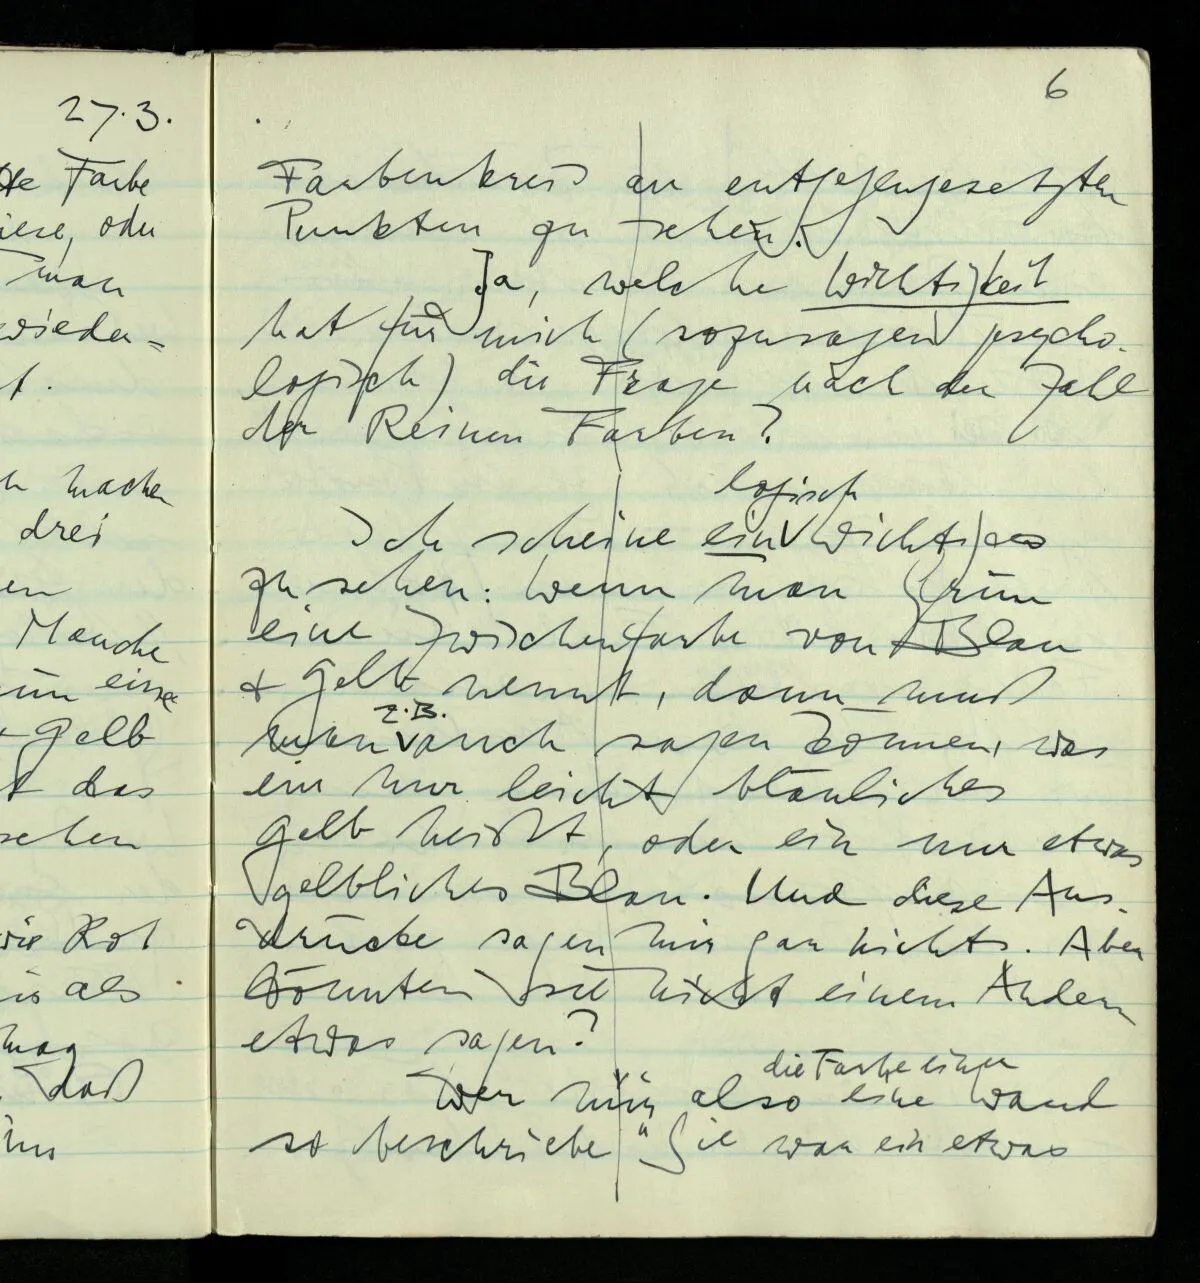 27.3.
Farbe
iese, oder
man
wieder=
t.
machen
drei
en
Manche
eine
+ Gelb
t das
sehen
wie Rot
is als
mag
, daß
ins
6
Farbenkreis an entgegengesetzten
Punkten zu sehen.
Ja, welche Wichtigkeit
hat für mich (sozusagen psycho-
logisch) die Frage nach der Zahl
der Reinen Farben?
logisch
Ich scheine ein Wichtiges
zu sehen: Wenn man Grün
eine Zwischenfarbe von Blau
+ Gelb nennt, dann muß
z.B.
man auch sagen können, was
ein nur leicht bläuliches
Gelb heißt, oder ein nur etwas
gelbliches Blau. Und diese Aus-
drücke sagen mir gar nichts. Aber
könnten sie nicht einem Andern
etwas sagen?
die Farbe einer
Wer mir also eine Wand
so beschriebe "Sie war ein etwas